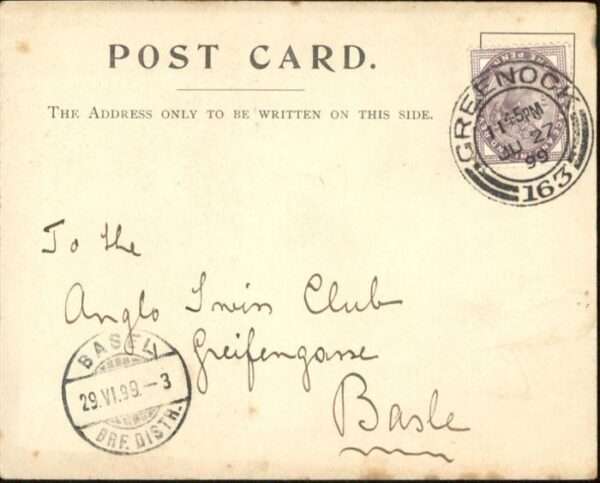 POST CARD.
THE ADDRESS ONLY TO BE WRITTEN ON THIS SIDE.
GREENOCK
PM
JU 27
99
163
To the
Anglo Swiss Club
Greifengasse
Basle
BASEL
29.VI.99.–3
BRF. DISTR.